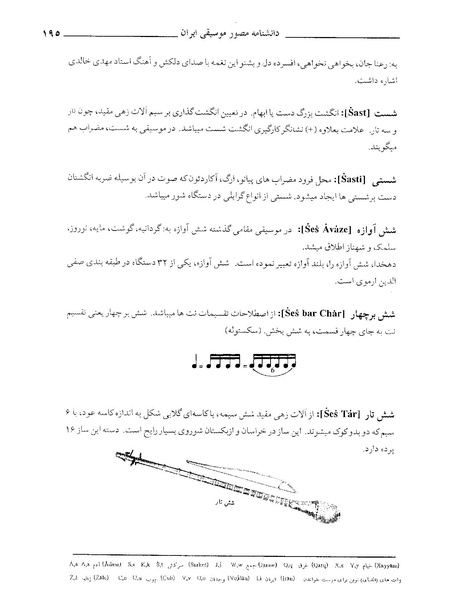 دانشنامه مصور موسیقی ایران ۱۹۵
به: رعنا جان، بخواهی نخواهی، افسرده دل و بشنو این نغمه با صدای دلکش و آهنگ استاد مهدی خالدی
اشاره داشت.
شست [Šast]: انگشت بزرگ دست یا ابهام. در تعیین انگشت‌گذاری بر سیم آلات زهی مقید، چون تار
و سه تار. علامت بعلاوه (+) نشانگر کارگیری انگشت شست میباشد. در موسیقی به شست، مضراب هم
میگویند.
شستی [Šasti]: محل فرود مضراب های پیانو، ارگ، آکاردئون که صوت در آن بوسیله ضربه انگشتان
دست بر شستی ها ایجاد میشود. شستی از انواع گرایلی در دستگاه شور میباشد.
شش آوازه [Šeš Àvàze]: در موسیقی مقامی گذشته شش آوازه به: گردانیه، گوشت، مایه، نوروز،
سلمک و شهناز اطلاق میشد.
دهخدا، شش آوازه را، بلند آوازه تعبیر نموده است. شش آوازه، یکی از ۳۲ دستگاه در طبقه بندی صفی
الدین ارموی است.
شش بر چهار [Šeš bar Chàr]: از اصطلاحات تقسیمات نت ها میباشد. شش بر چهار یعنی تقسیم
نت به جای چهار قسمت، به شش بخش. (سکستوله)
6
شش تار [Šeš Tàr]: از آلات زهی مقید شش سیمه، با کاسه‌ای گلابی شکل به اندازه کاسه عود، با ۶
سیم که دو بدو کوک میشوند. این ساز در خراسان و ازبکستان شوروی بسیار رایج است. دسته این ساز ۱۶
پرده دارد.
شش تار